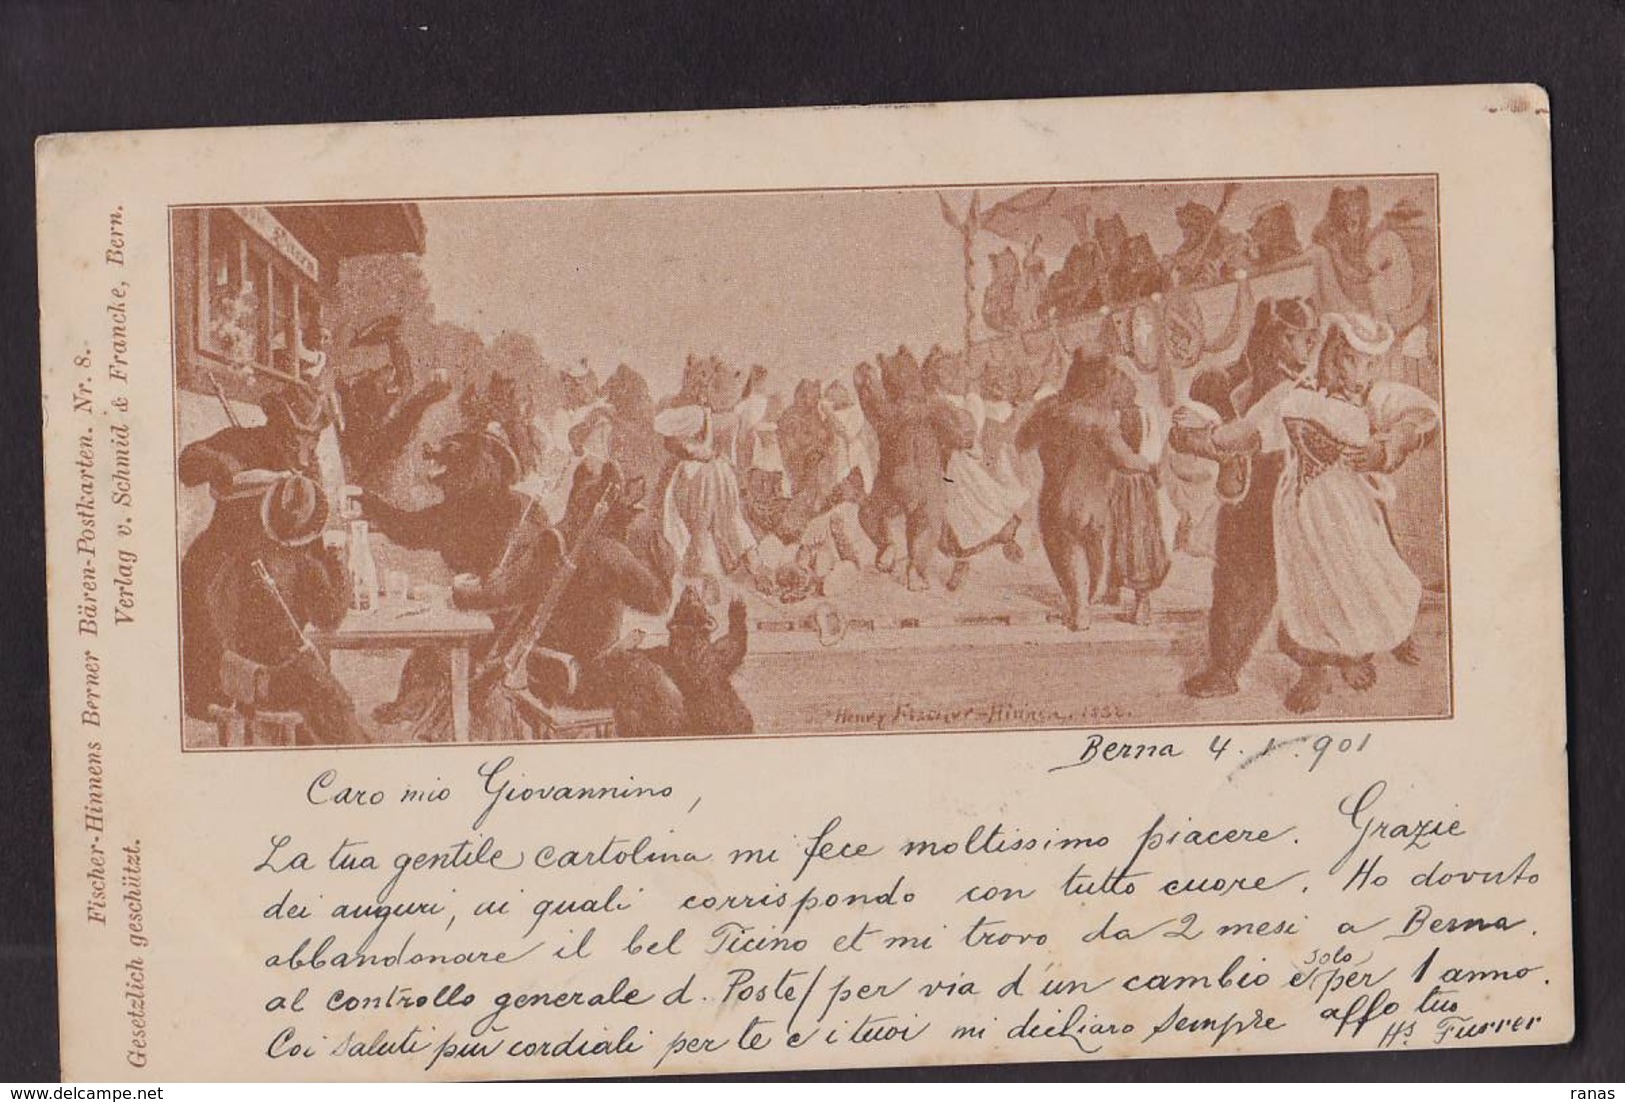 Fischer-Hinnens Berner Bären-Postkarten. Nr. 8.
Verlag v. Schmid & Francke, Bern.
Gesetzlich geschützt.
Henry Fischer-Hinnen.
Berna 4. 1. 901
Caro mio Giovannino,
La tua gentile cartolina mi fece moltissimo piacere. Grazie
dei auguri, ai quali corrispondo con tutto cuore. Ho dovuto
abbandonare il bel Ticino et mi trovo da 2 mesi a Berna.
al controllo generale d. Poste/per via d'un cambio e solo per 1 anno.
Coi saluti più cordiali per te e i tuoi mi dichiaro sempre affo tuo
Hs. Furrer
ranas